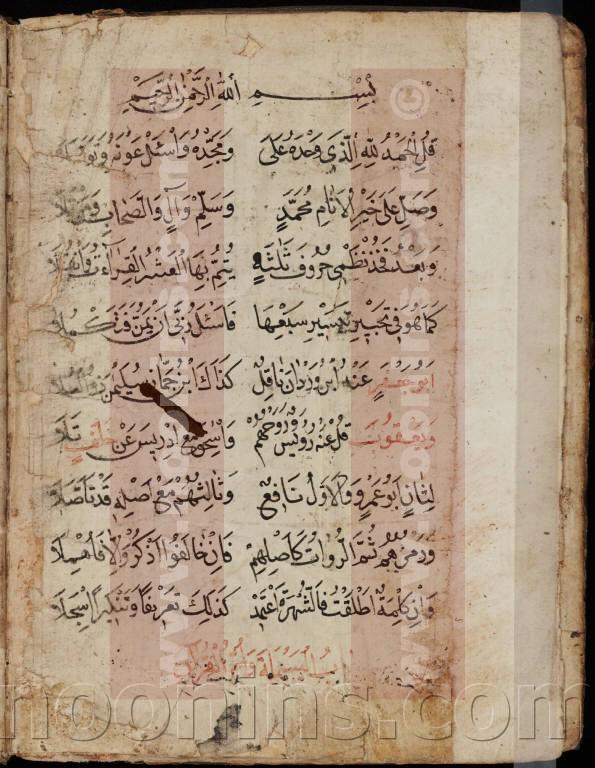 بِسْمِ اللَّهِ الرَّحْمٰنِ الرَّحِيمِ
قُلِ الْحَمْدُ لِلَّهِ الَّذِى وَحْدَهُ عَلَى وَمَجِّدْهُ وَاسْئَلْ عَوْنَهُ وَتَوَسَّلَا
وَصَلِّ عَلَى خَيْرِ الْاَنَامِ مُحَمَّدٍ وَسَلِّمْ وَآلٍ وَالصَّحَابِ وَمَنْ تَلَا
وَبَعْدُ فَخُذْ نَظْمِى حُرُوفَ ثَلٰثَةٍ يُتِمُّ بِهَا الْعَشْرُ الْقِرَاآتُ وَانْقُلَا
كَمَا هُوَ فِى تَحْبِيرِ تَيْسِيرِ سَبْعِهَا فَاَسْئَلُ رَبِّى اَنْ يَمُنَّ فَتَكْمُلَا
اَبُو جَعْفَرٍ عَنْهُ ابْنُ وَرْدَانَ نَاقِلٌ كَذَاكَ ابْنُ جَمَّازٍ سُلَيْمٰنُ ذُو الْعُلَا
وَيَعْقُوبُ قُلْ عَنْهُ رُوَيْسٌ وَرَوْحُهُمْ وَاِسْحٰقُ مَعْ اِدْرِيسَ عَنْ خَلَفٍ تَلَا
لِثَانٍ اَبُو عَمْرٍو وَالْاَوَّلِ نَافِعٌ وَثَالِثُهُمْ مَعْ اَصْلِهِ قَدْ تَأَصَّلَا
وَرَمْزُهُمْ ثُمَّ الرُّوَاتُ كَاَصْلِهِمْ فَاِنْ خَالَفُوا اَذْكُرْ وَاِلَّا فَاُهْمِلَا
وَاِنْ كَلِمَةً اَطْلَقْتُ فَالشُّهْرَةَ اعْتَمِدْ كَذٰلِكَ تَعْرِيفًا وَتَنْكِيرًا اسْجِلَا
بَابُ الْبَسْمَلَةِ وَاُمِّ الْقُرْآنِ